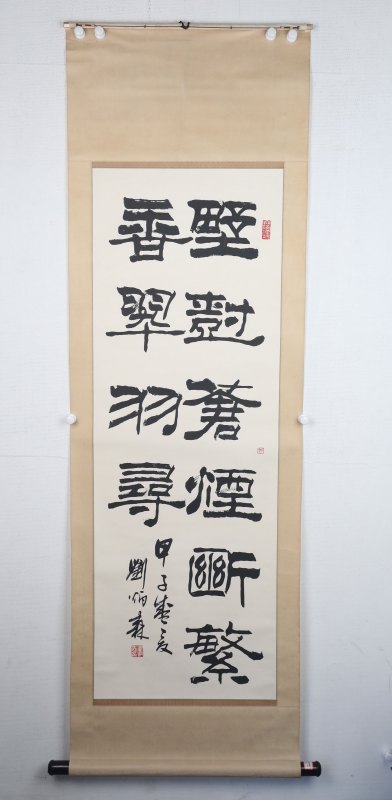 對蒼煙斷繁
香翠羽尋
甲子盛夏
劉炳森